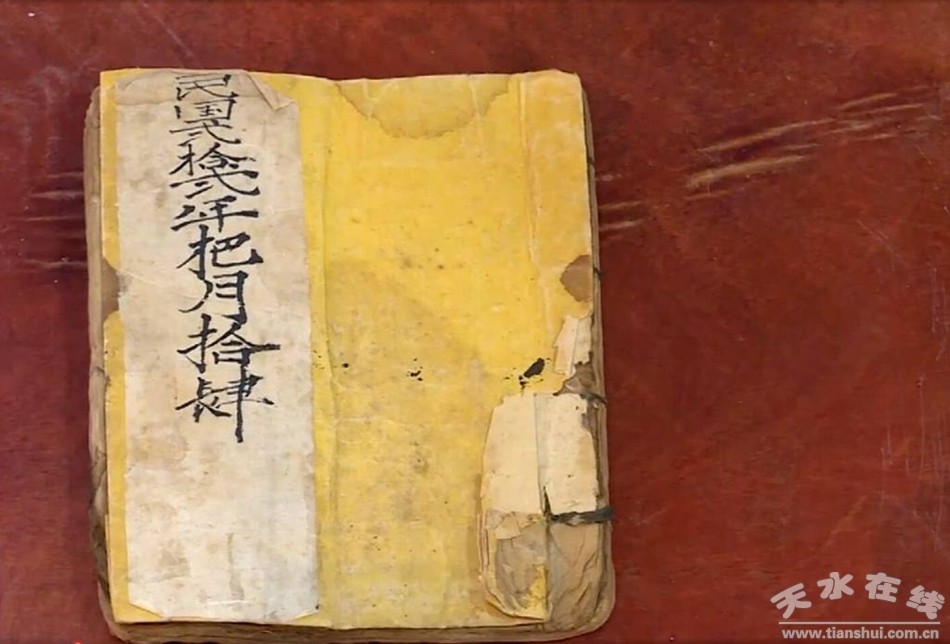 民国弍拾弍年杷月拾肆
天水在线
www.tianshui.com.cn